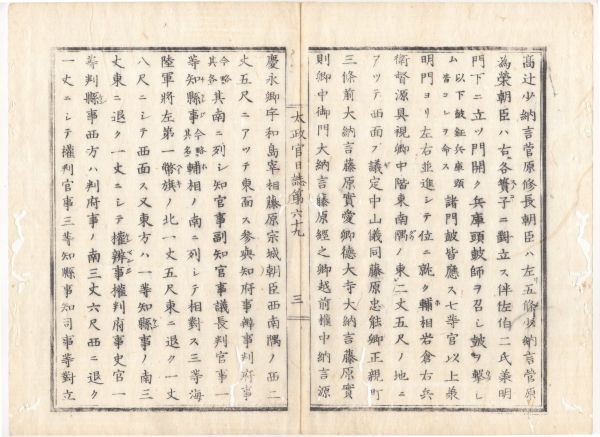 髙辻少納言菅原修長朝臣ハ左五條少納言菅原
為榮朝臣ハ右各簀子ニ對立ス伴佐伯二氏兼明
門下ニ立ツ門開ク兵庫頭皷師ヲ召シ皷ヲ擊シ
ム 以下皷鉦兵庫頭皆コレヲ命ス 諸門皷皆應ス七等官以上兼
明門ヨリ左右並進シテ位ニ就ク輔相岩倉右兵
衛督源具視卿中階東南隅ノ東二丈五尺ノ地ニ
アツテ西面ス議定中山儀同藤原忠能卿正親町
三條前大納言藤原實愛卿德大寺大納言藤原實
則卿中御門大納言藤原經之卿越前權中納言源
太政官日誌第六十九 三
慶永卿宇和島宰相藤原宗城朝臣西南隅ノ西二
丈五尺ニアツテ東面ス參與知府事辨事判府事
今略其各 其南ニ列シ知官事副知官事議長判官事一
等知縣事 今略其各 輔相ノ南ニ列シテ相對ス三等海
陸軍將左第一幣旗ノ北一丈五尺東ニ退ク一丈
八尺ニシテ西面ス又東方ハ一等知縣事ノ南三
丈東ニ退ク一丈ニシテ權辨事權判府事史官一
等判縣事西方ハ判府事ノ南三丈六尺西ニ退ク
一丈ニシテ權判官事三等知縣事知司事等對立